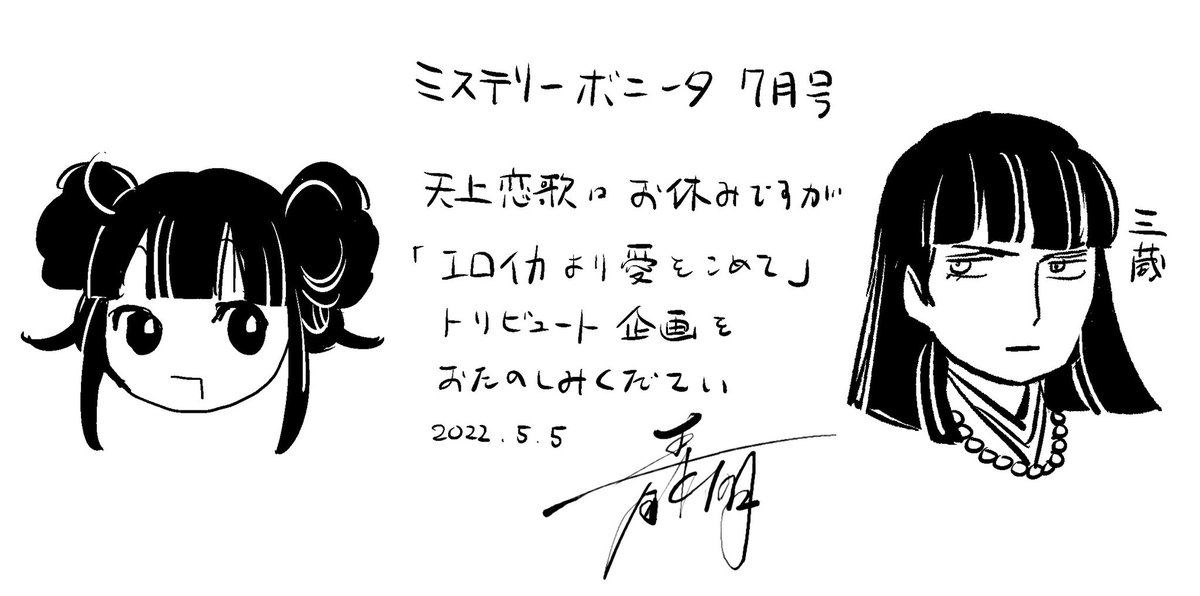 ミステリーボニータ 7月号
天上恋歌は お休みですが
「エロイカより愛をこめて」
トリビュート企画を
おたのしみください
2022.5.5
三蔵